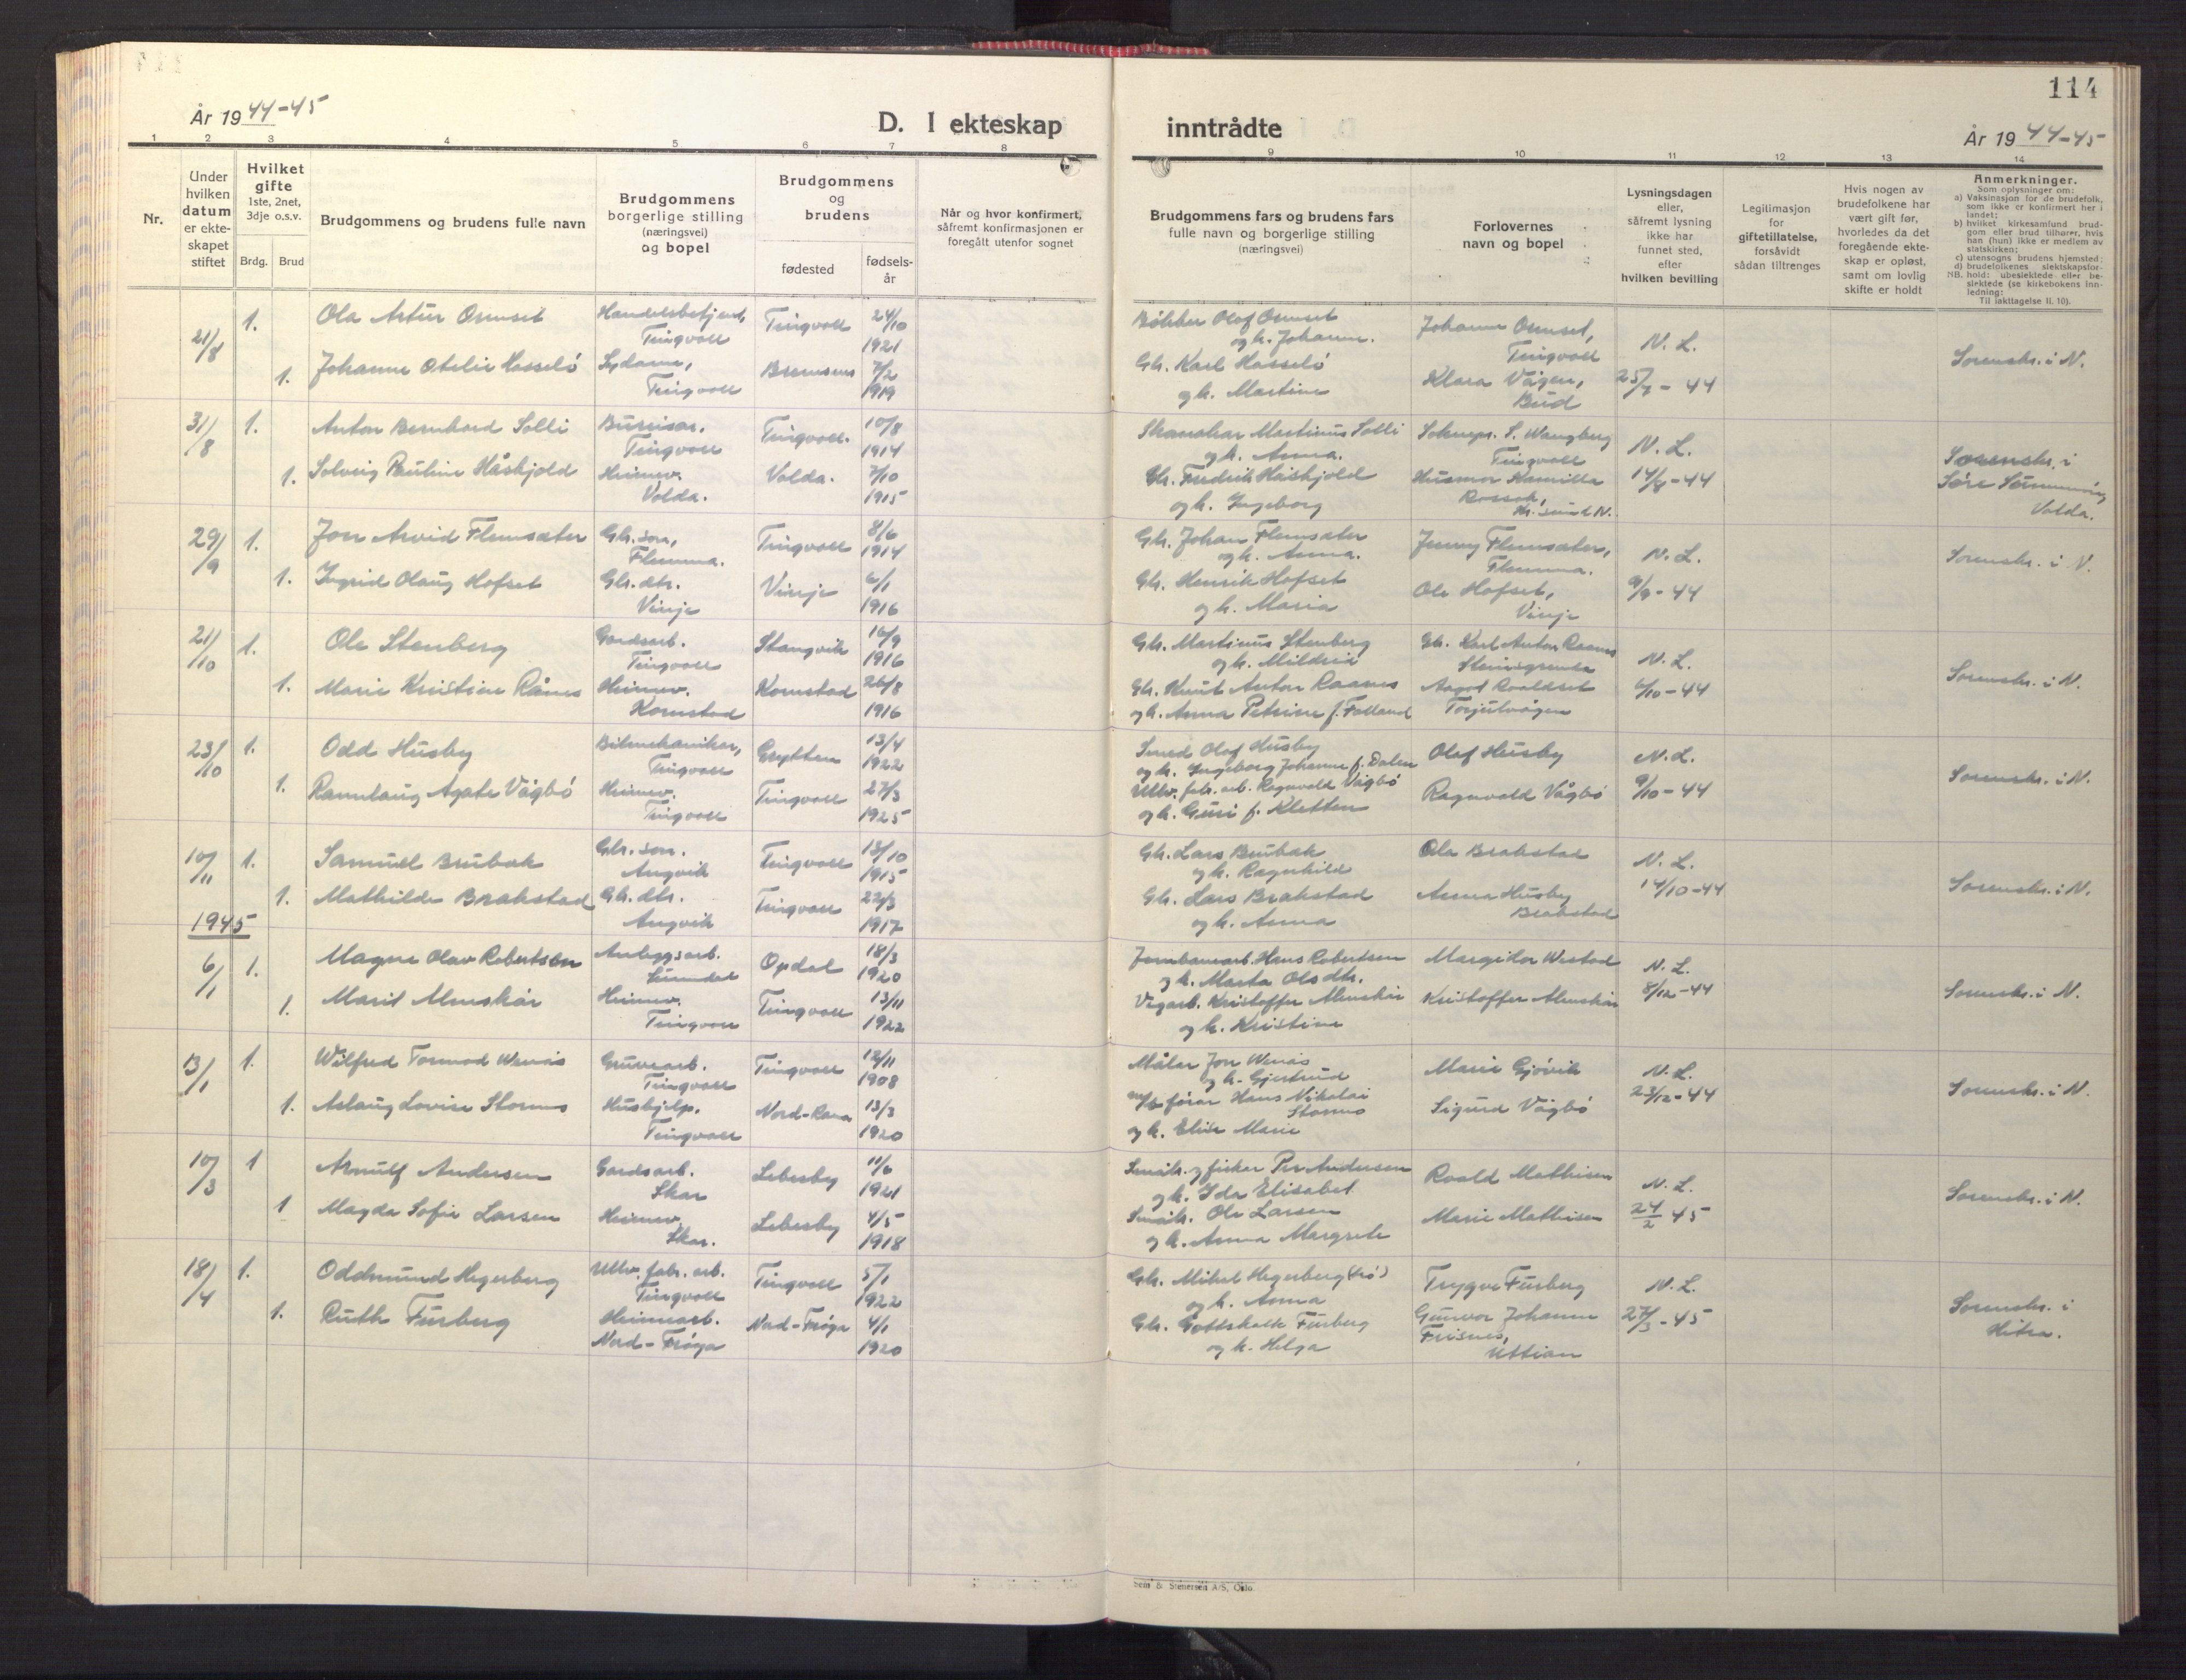 114
År 1944-45
D. I ekteskap
inntrådte
År 1944-45
1 2 3 4 5 6 7 8 9 10 11 12 13 14
Nr.
Under
hvilken
datum
er ekte-
skapet
stiftet
Hvilket
gifte
1ste, 2net,
3dje o.s.v.
Brdg. Brud
Brudgommens og brudens fulle navn
Brudgommens
borgerlige stilling
(næringsvei)
og bopel
Brudgommens
og
brudens
fødested
fødsels-
år
Når og hvor konfirmert,
såfremt konfirmasjonen er
foregått utenfor sognet
Brudgommens fars og brudens fars
fulle navn og borgerlige stilling
(næringsvei)
Forlovernes
navn og bopel
Lysningsdagen
eller,
såfremt lysning
ikke har
funnet sted,
efter
hvilken bevilling
Legitimasjon
for
giftetillatelse,
forsåvidt
sådan tiltrenges
Hvis nogen av
brudefolkene har
vært gift før,
hvorledes da det
foregående ekte-
skap er opløst,
samt om lovlig
skifte er holdt
Anmerkninger.
Som oplysninger om:
a) Vaksinasjon for de brudefolk,
som ikke er konfirmert her i
landet;
b) hvilket kirkesamfund brud-
gom eller brud tilhører, hvis
han (hun) ikke er medlem av
statskirken;
c) utensogns brudens hjemsted;
d) brudefolkenes slektskapsfor-
NB. hold: ubeslektede eller be-
slektede (se kirkebokens inn-
ledning:
Til iakttagelse II. 10).
21/8 1. Ola Artur Ormset Handelsbetjent, Tingvoll Tingvoll 24/10 1921
1. Johanne Otelie Hasselö Tingvoll Bremsnes 7/2 1919
Bökker Olaf Ormset
og h. Johanne.
Gbr. Karl Hasselö
og h. Martine
Johanne Ormset,
Tingvoll
Klara Vågen,
Bud
N. L.
25/7 - 44
Sorenskr. i N.
31/8 1. Anton Bernhard Solli Tingvoll Tingvoll. 10/8 1914
1. Solveig Pauline Håskjold Heimev. Volda. Volda. 7/10 1915
Skomakar Martinus Solli
og h. Anna.
Gbr. Fredrik Håskjold
og h. Ingeborg
Soknepr. S. Wangberg
Tingvoll
Husmor
Kr. sund N.
N. L.
14/8 - 44
Sorenskr. i
Søre Sunnmøre
Volda.
29/9 1. Jon Arvid Flemsæter Gbr. son, Flemma. Tingvoll 8/6 1914
1. Ingrid Olaug Hofset Gbr. dtr. Vinje Vinje 6/1 1916
Gbr. Johan Flemsæter
og h. Anna.
Gbr. Henrik Hofset
og h. Maria
Jenny Flemsæter,
Flemma.
Ole Hofset,
Vinje
N. L.
9/9 - 44
Sorenskr. i N.
21/10 1. Ole Stenberg Gardsarb. Tingvoll Stangvik 16/9 1916
1. Marie Kristine Rånes Heimev. Kornstad Kornstad 26/8 1916
Gbr. Martinus Stenberg
og h. Mildrid
Gbr. Knut Anton Raanes
og h. Anna Petrine f. Falland
Gbr. Karl Anton Raanes
Aagot Roaldset
Torjulvågen
N. L.
6/10 - 44
Sorenskr. i N.
23/10 1. Odd Husby Bilmekanikar, Tingvoll Grytten 13/4 1922
1. Rannlaug Agate Vågbö Heimev. Tingvoll Tingvoll 27/3 1925
Smed Olaf Husby
og h. Ingeborg Johanne f. Dalen
Ullv. fabr. arb. Ragnvald Vågbö
og h. Guri f. Kletten
Olaf Husby
Ragnvald Vågbö
N. L.
9/10 - 44
Sorenskr. i N.
10/11 1. Samuel Brubak Gbr. son. Angvik Tingvoll 13/10 1915
1. Mathilde Brakstad Gbr. dtr. Angvik Tingvoll 22/3 1917
Gbr. Lars Brubak
og h. Ragnhild
Gbr. Lars Brakstad
og h. Anna
Ola Brakstad
Anna Husby
Brakstad
N. L.
14/10 - 44
Sorenskr. i N.
1945
6/1 1. Magne Olav Robertsen Anleggsarb. Sunndal Opdal 18/3 1920
1. Marit Almskår Heimev. Tingvoll Tingvoll 13/11 1922
Jernbanearb. Hans Robertsen
og h. Marta Olsdtr.
Vegarb. Kristoffer Almskår
og h. Kristine
Margido Westad
Kristoffer Almskår
N. L.
8/12 - 44
Sorenskr. i N.
13/1 1. Wilfred Tormod Wenås Gruvearb. Tingvoll Tingvoll 12/11 1908
1. Aslaug Lovise Stormo Hushjelp. Tingvoll Nord-Rana 13/3 1920
Målar Jon Wenås
og h. Gjertrud
m/k förar Hans Nikolai
Stormo
og h. Elise Marie
Marie Gjövik
Sigurd Vågbö
N. L.
23/12 - 44
Sorenskr. i N.
10/3 1 Arnulf Andersen Gardsarb. Skar Lebesby 11/6 1921
1 Magda Sofie Larsen Heimev. Skar. Lebesby 4/5 1918
Småbr. og fisker Per Andersen
og h. Ida Elisabet
Småbr. Ole Larsen
og h. Anna Margrete
Roald Mathisen
Marie Mathisen
N. L.
24/2 45
Sorenskr. i N.
18/4 1. Oddmund Hegerberg Ullv. fabr. arb. Tingvoll Tingvoll 5/1 1922
1. Ruth Furberg Heimearb. Nord-Fröya Nord-Fröya 4/1 1920
Gbr. Mikal Hegerberg
og h. Anna
Gbr. Gottskalk Furberg
og h. Helga
Trygve Furberg
Gunvor Johanne
Frisnes,
Uttian
N. L.
27/3 - 45
Sorenskr. i
Hitra.
Sem & Stenersen A/S, Oslo.